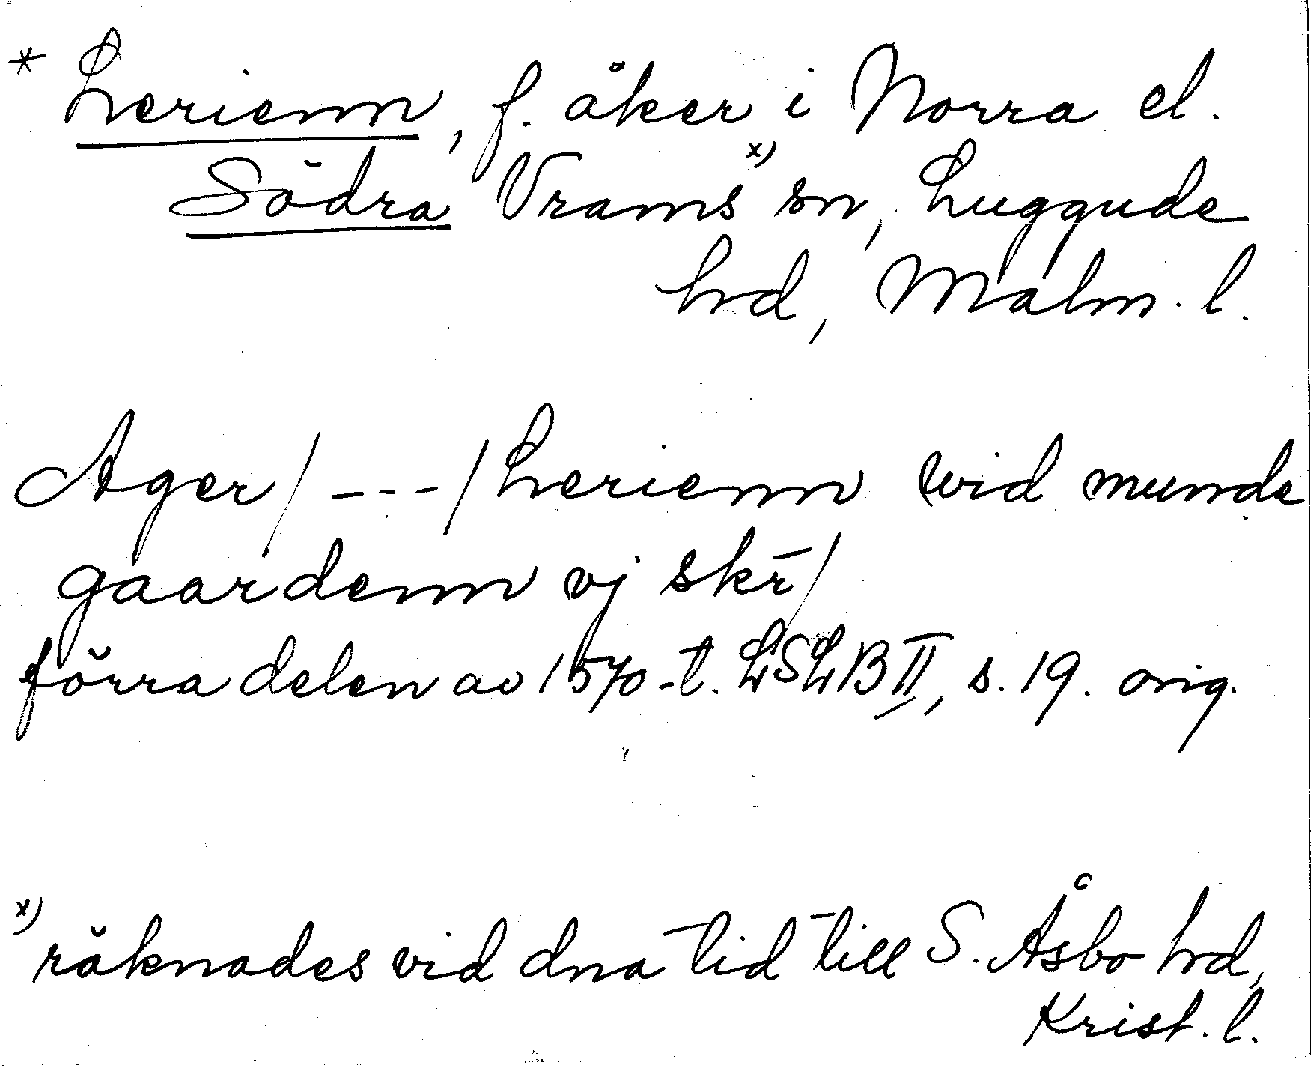 * Lerienn, f. åker i Norra el.
Södra Vrams x) sn, Luggude
hd, Malm. l.
Ager/ --- /Lerienn wid munde
gaardenn vj skr̄/
förra delen av 1570-t. LSLB II, s. 19. orig.
x) räknades vid dna tid till S. Åsbo hd,
Krist. l.